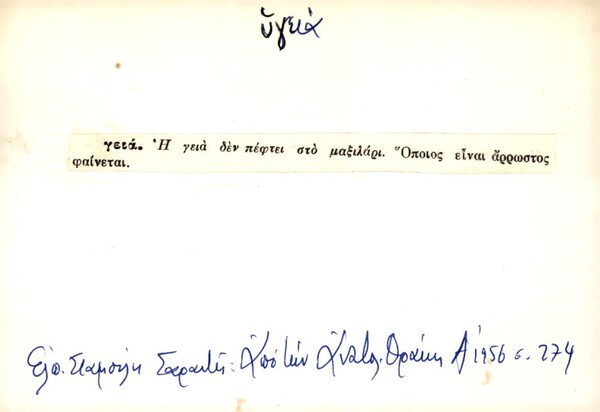 ὑγειά
γειά. Ἡ γειὰ δὲν πέφτει στὸ μαξιλάρι. Ὅποιος εἶναι ἄρρωστος
φαίνεται.
Ἐλπ. Σταμούλη Σαραντῆ: Ἀπὸ τὴν Ἀνατολ. Θράκη Α' 1956 σ. 274